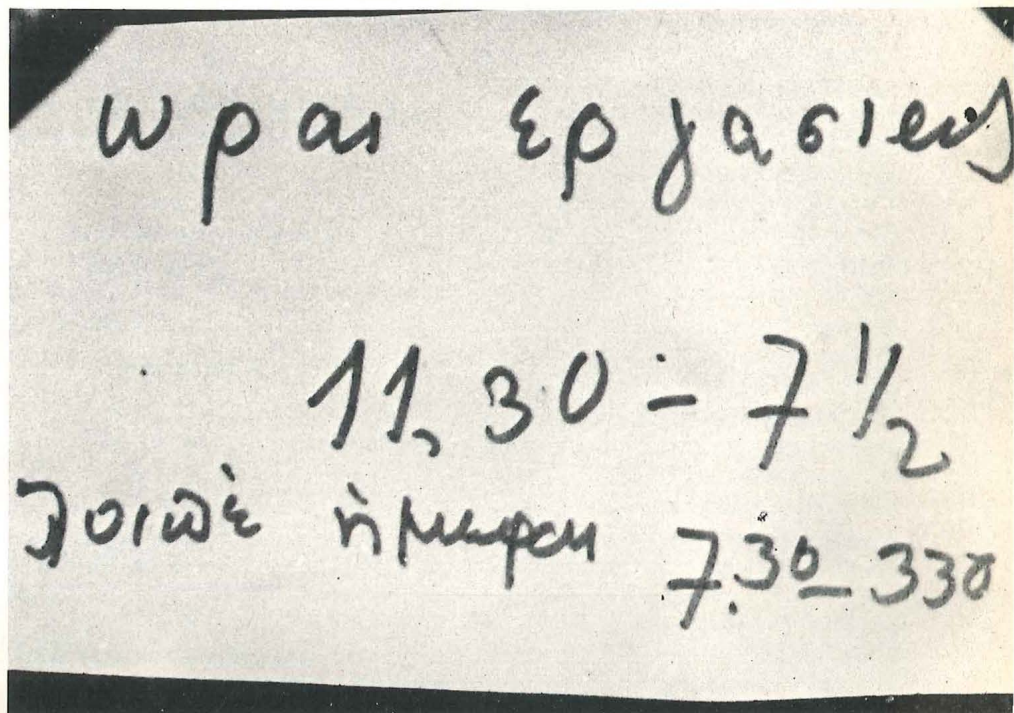 ωραι εργασιεως
11,30 - 7 1/2
λοιπὲ ἡμεραι 7.30 - 330